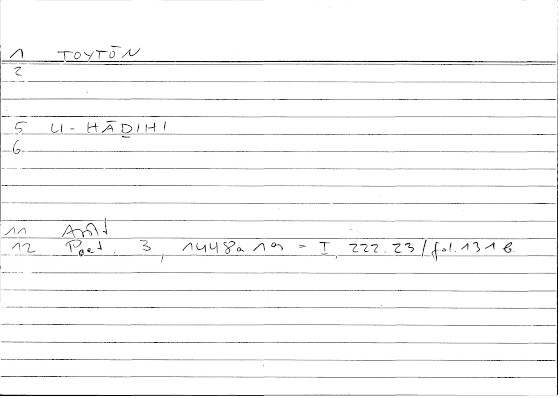 1 TOYTŌN
2
5 LI-HĀḎIHI
6
11 Arist
12 Poet. 3, 1448a19 = I, 222.23/fol.131b